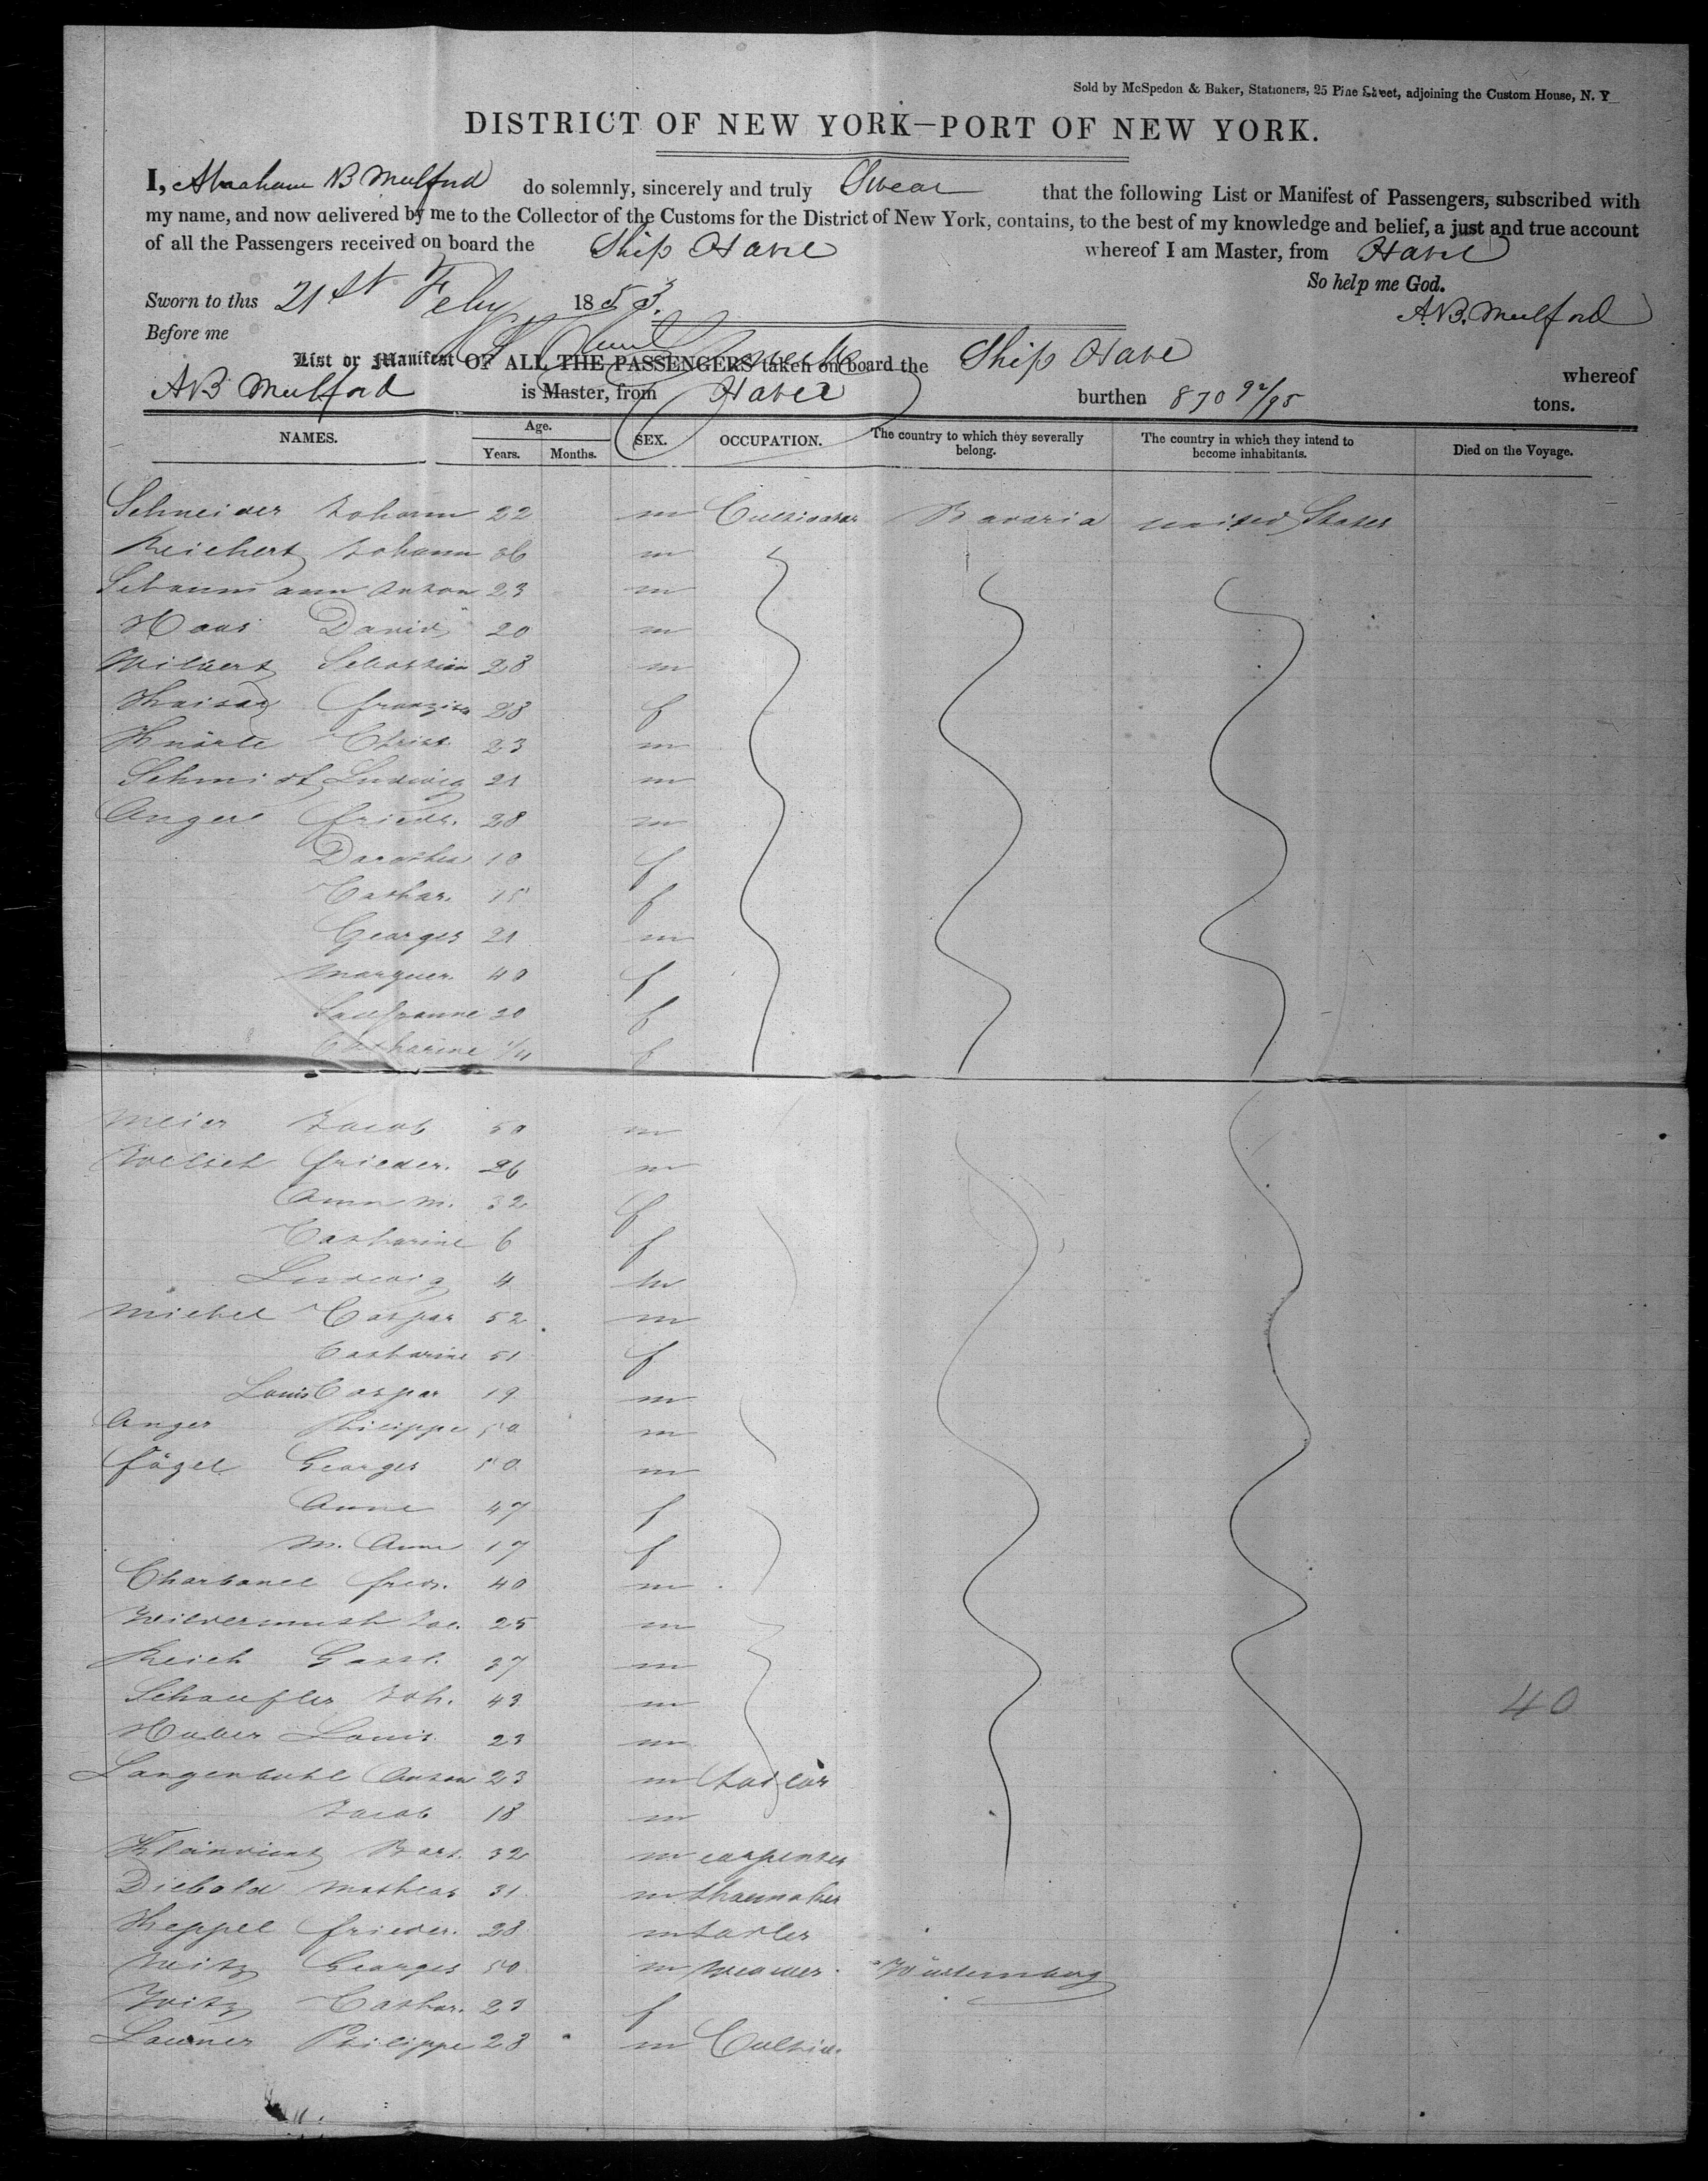 Sold by McSpedon & Baker, Stationers, 25 Pine Street, adjoining the Custom House, N. Y
DISTRICT OF NEW YORK—PORT OF NEW YORK.
I, Abraham B Mulford do solemnly, sincerely and truly Swear that the following List or Manifest of Passengers, subscribed with
my name, and now delivered by me to the Collector of the Customs for the District of New York, contains, to the best of my knowledge and belief, a just and true account
of all the Passengers received on board the Ship Havre whereof I am Master, from Havre
So help me God.
Sworn to this 21st Feby 1853.
A.B. Mulford
Before me
List or Manifest OF ALL THE PASSENGERS taken on board the Ship Havre whereof
AB Mulford is Master, from Havre burthen 870 92/95 tons.
NAMES. Age. Years. Months. SEX. OCCUPATION. The country to which they severally belong. The country in which they intend to become inhabitants. Died on the Voyage.
Schneider Johann 22 m Cultivator Bavaria united States
Reichert Johann 36 m
Schaumann Anton 23 m
Haas David 20 m
Wilbert Sebastian 28 m
Kaiser Franzisa 28 f
Christ. 23 m
Schmidt Ludwig 21 m
Angel friedr. 28 m
Dorothea 10 f
Cathar. 15 f
Georges 21 m
Marguer. 40 f
20 f
Catharine f
Meier Jacob 50 m
frieder. 26 m
Anna M. 32 f
Catharine 6 f
Ludwig 4 m
Michel Caspar 52 m
Catharine 51 f
Louis Caspar 19 m
Anger Philippe 50 m
fögel Georges 50 m
Anne 47 f
M. Anne 17 f
Charbonel fredr. 40 m
Wildermuth Jac. 25 m
Reich 37 m
Schaufler Joh. 43 m
Huber Louis 23 m
Langenbuhl Anton 23 m tailor
Jacob 18 m
Bart. 32 m carpenter
Diebold Mathias 31 m shoemaker
Keppel frieder. 28 m sadler
Witz Georges 50 m weawer Würtemberg
Witz Cathar. 23 f
Launer Philippe 28 m Cultiv.
40